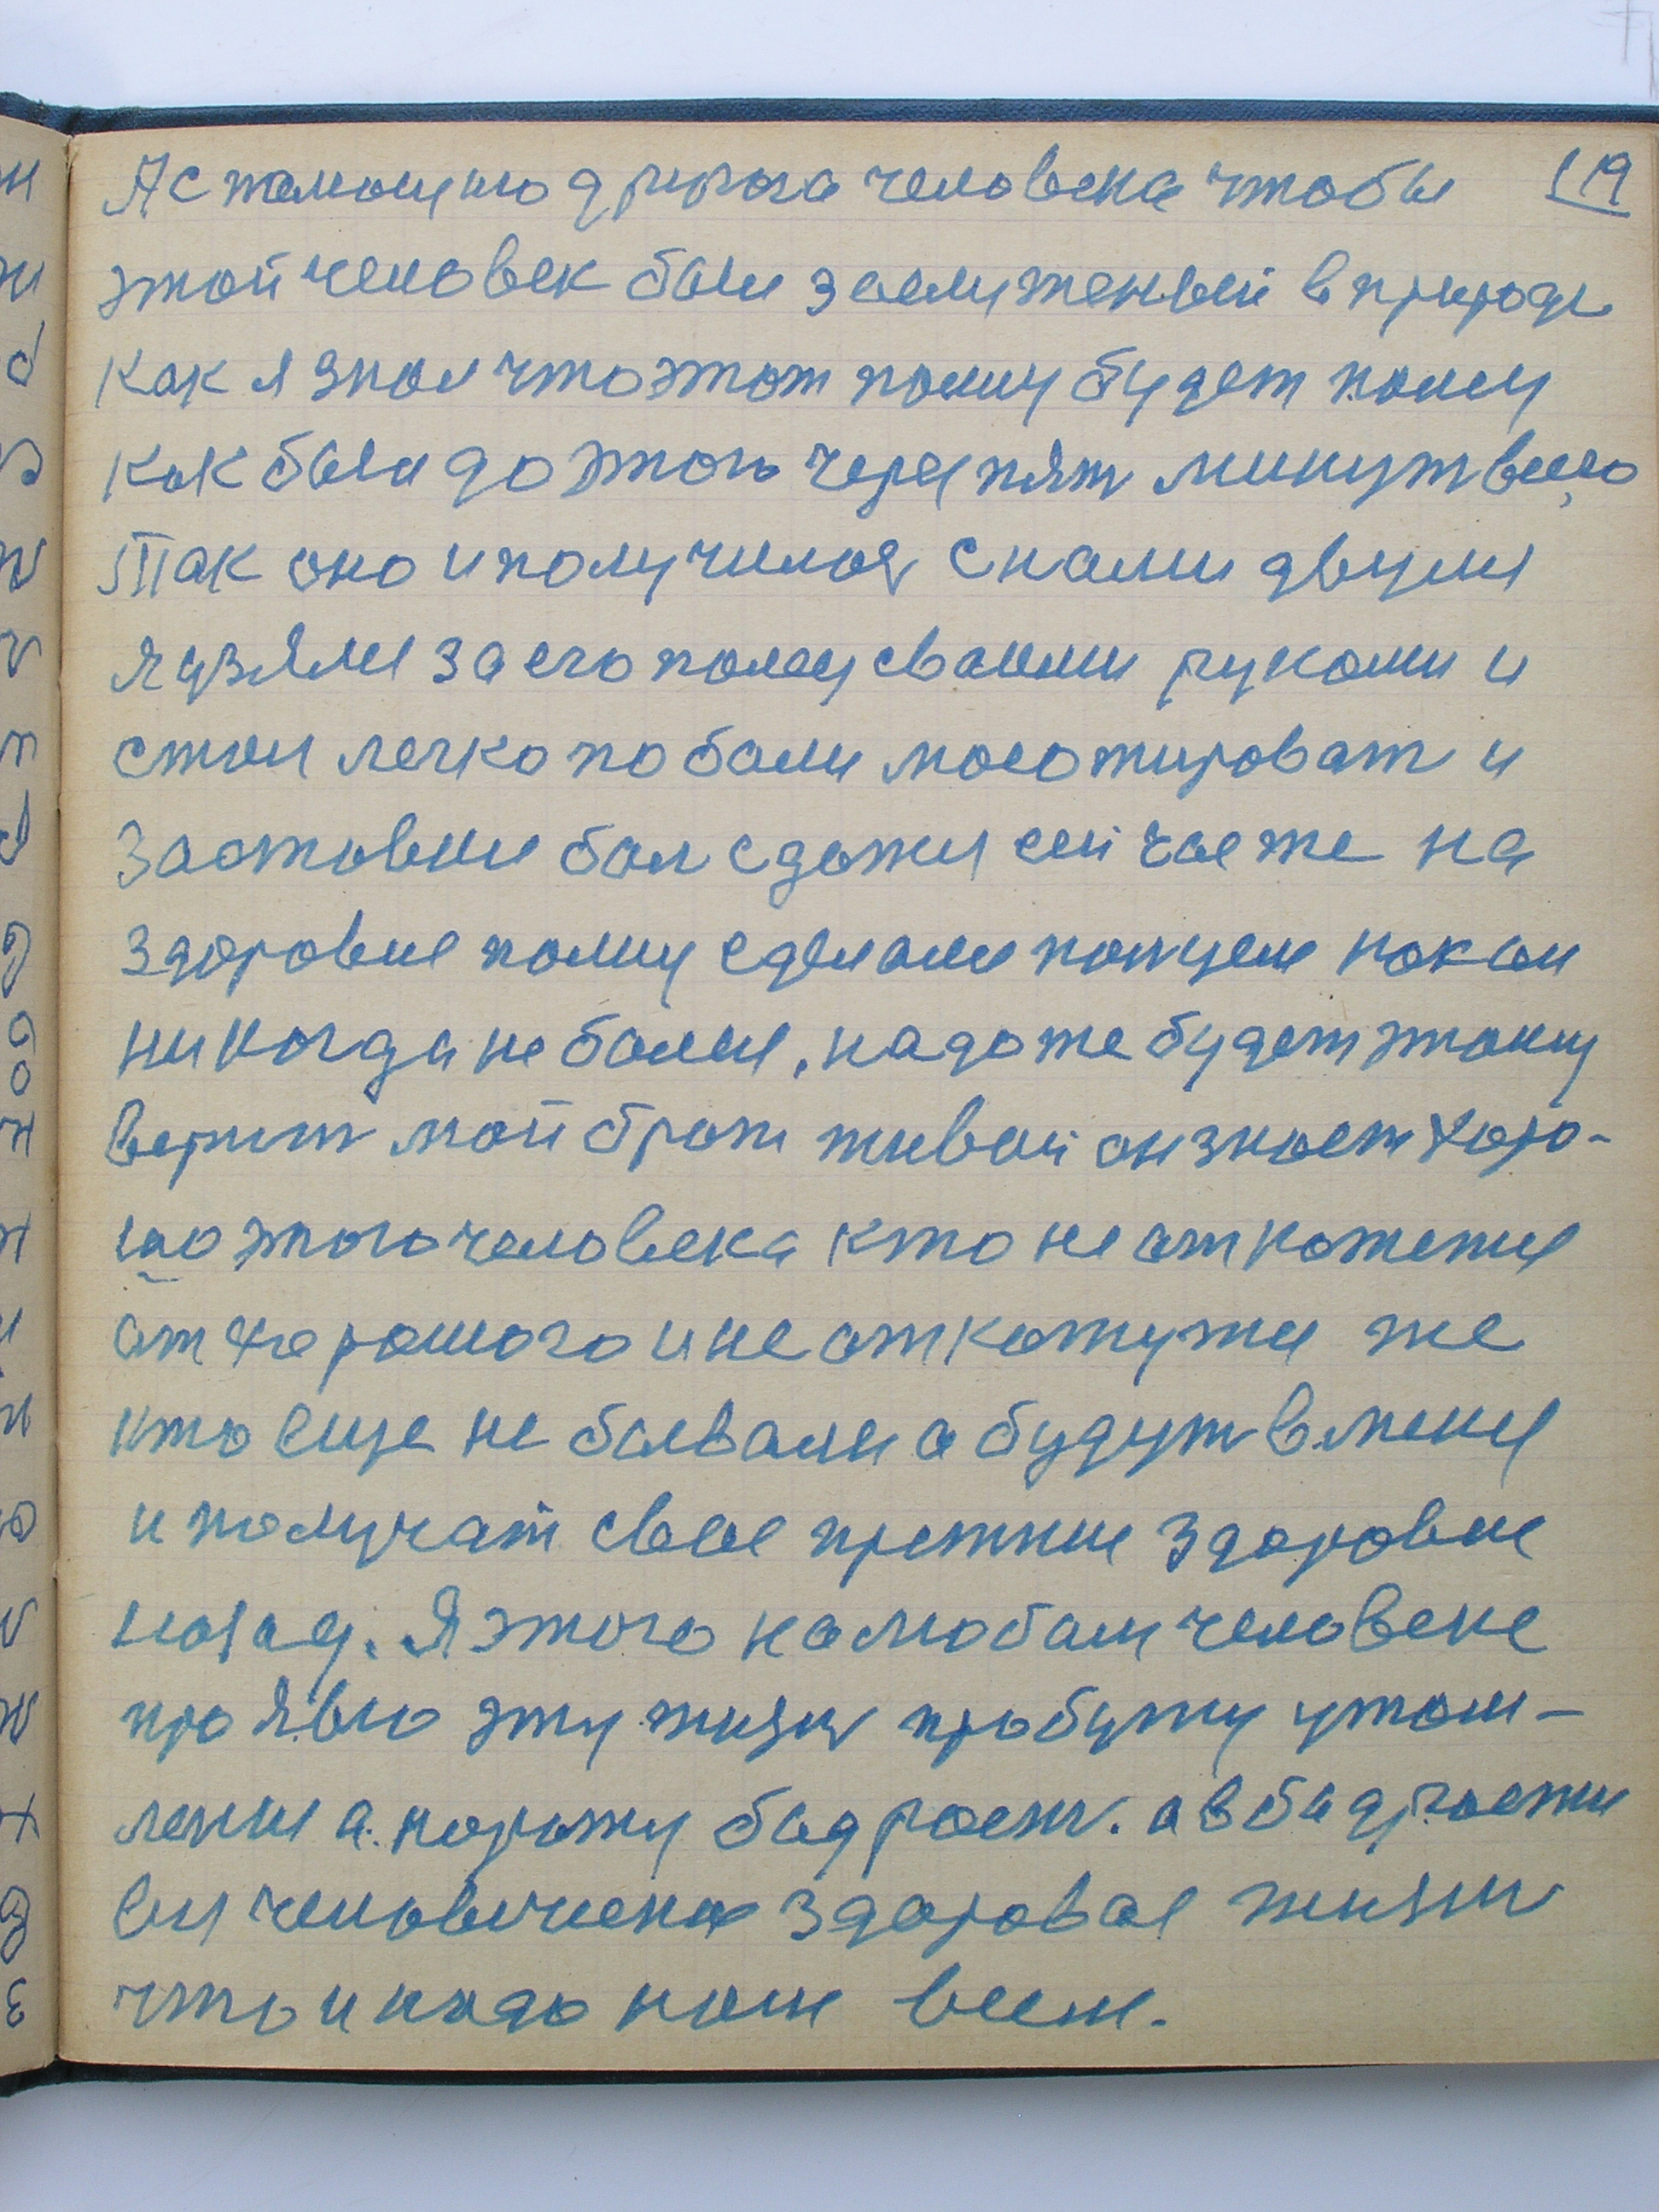 Я с помощию другога человека чтобы 119
этой человек был заслуженый в природе
как я знал что этот палиц будет палиц
как был до этого через пят минут всего
Так оно и получилоя с нами двумя
я узялся за его палец сваими руками и
стал легко по боли масажироват и
Заставил бол сдатся сей час же на
здоровие палиц сделали палцем пакои
никогда не болея, надо же будет этому
верит мой брат живой он знает хоро-
шо этого человека кто не аткажется
от хорошого и не аткажутся же
кто еще не бывали а будут в меня
и получат свае прежние здоровие
назад. Я этого на любом человеке
проявлю эту жизн пробужу утом-
ление а порожу бадрост. а в бадрости
вся человическая здоровае жизн
что и надо нам всем.